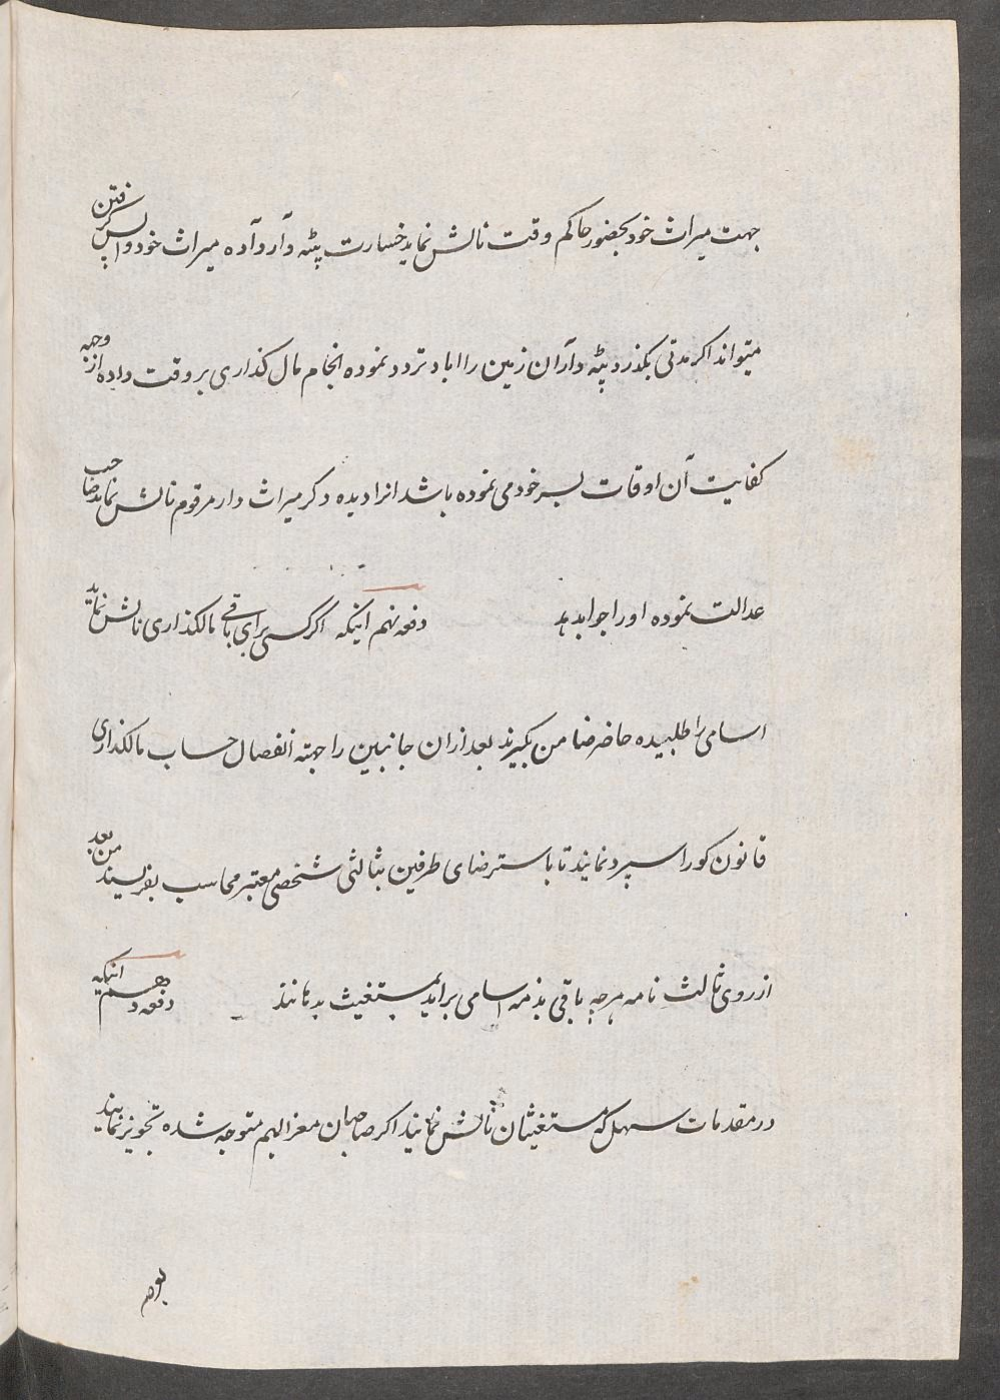 جهت میراث خود بحضور حاکم وقت نالش نماید خسارت پٹه دآر داده میراث خود واپس گرفتن
میتواند اکر مدتی بکذرد پٹه دآران زمین را اباد تردد نموده انجام مال کذاری بر وقت داده از وجه
کفایت آن اوقات بسر خود می نموده باشد انرا دیده دکر میراث دار مرقوم نالش نماید صاحب
عدالت نموده او را جوابدهد دفعه نهم اینکه اکر کسی برای باقی مالکذاری نالش نماید
اسامی را طلبیده حاضر ضامن بکیرند بعد ازان جانبین را جهته انفصال حساب مالکذاری
قانون کو را سپرد نمایند تا باسترضای طرفین بثالثی شخصی معتبر محاسب بفریسند من بعد
از روی ثالث نامه هرچه باقی بذمه اسامی براید بمستغیث بدهانند دفعه دهم اینکه
در مقدمات سهل که مستغیثان نالش نمایند اکر صاحبان معزالیهم متوجه شده تجویز نمایند